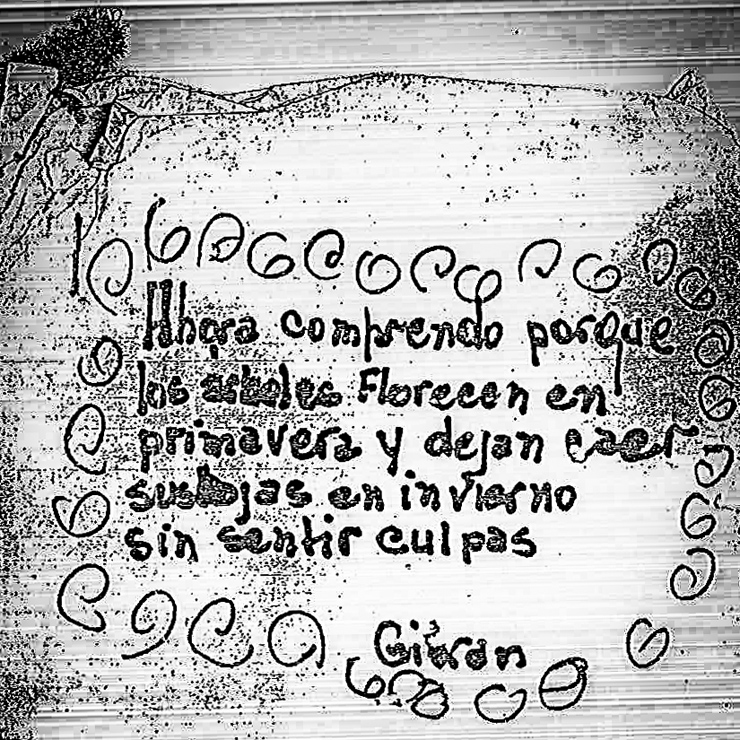 Ahora comprendo porque
los arboles Florecen en
primavera y dejan caer
sus hojas en invierno
sin sentir culpas
Gibran